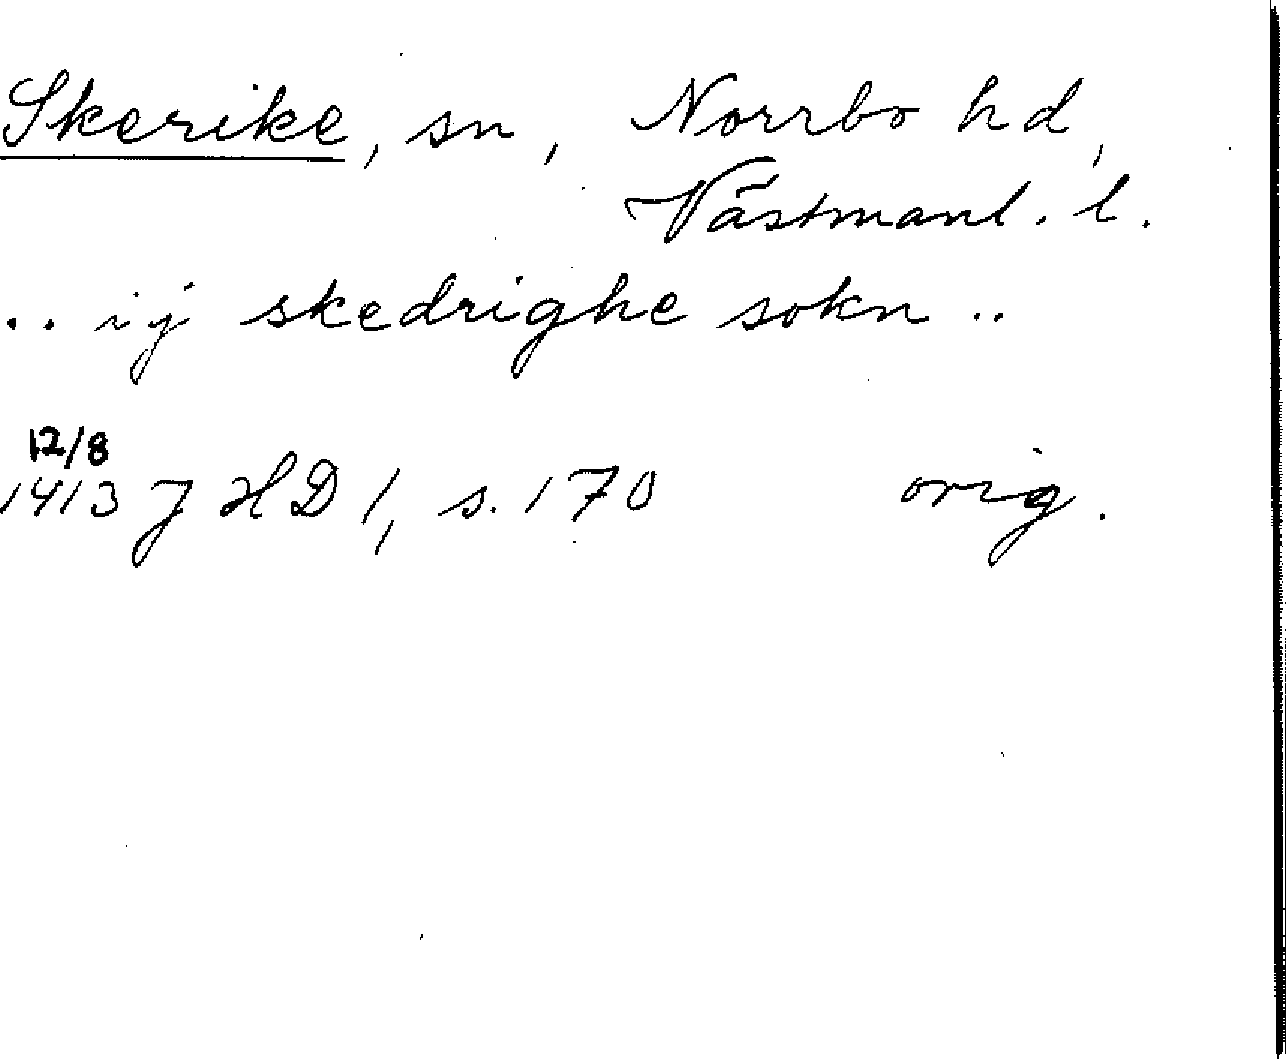 Skerike, sn, Norrbo hd,
Västmanl. l.
.. ij skedrighe sokn ..
12/8
1413 JHD 1, s. 170 orig.